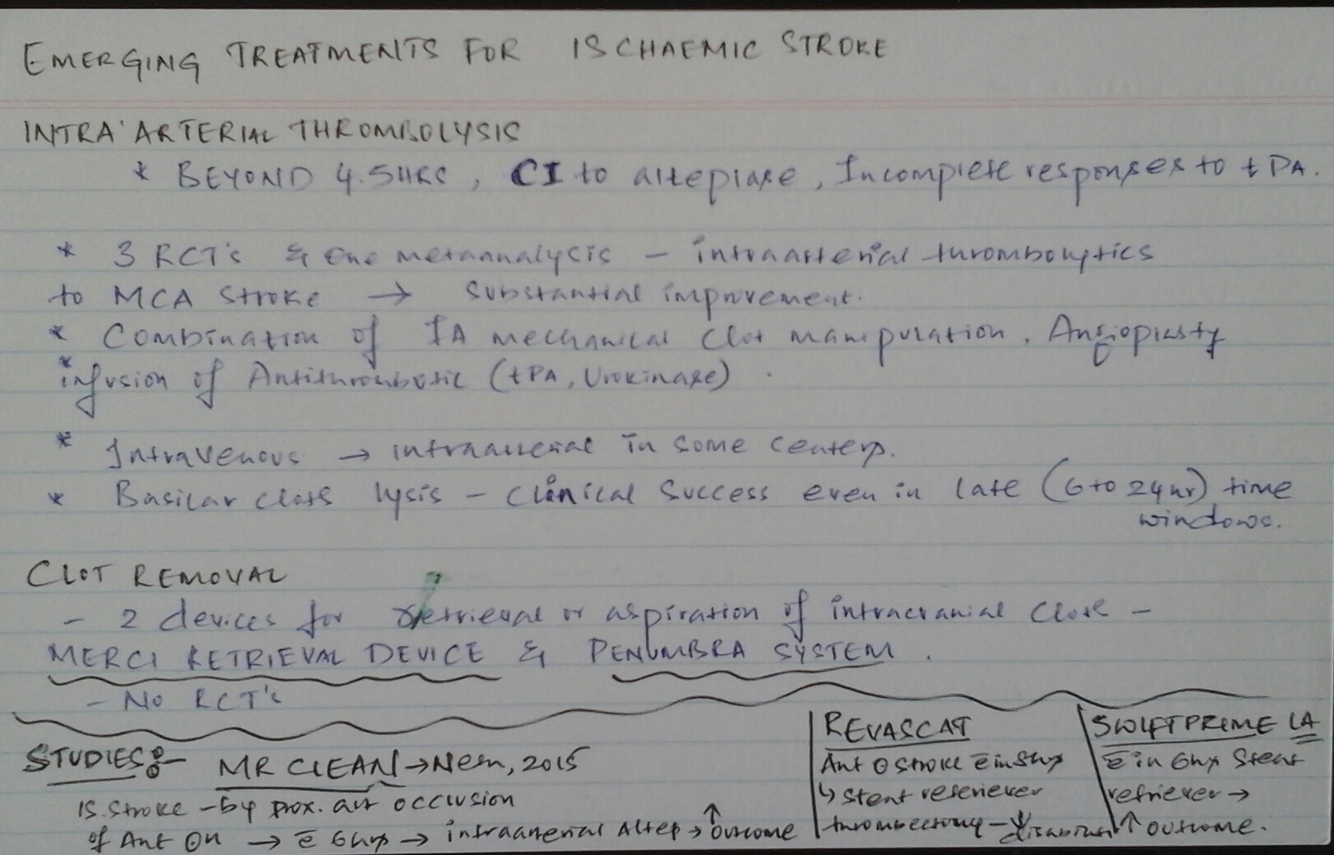 EMERGING TREATMENTS FOR ISCHAEMIC STROKE
INTRA'ARTERIAL THROMBOLYSIS
* BEYOND 4.5HRS, CI to alteplase, Incomplete responses to tPA.
* 3 RCT's & One metaanalysis – intraarterial thrombolytics
to MCA Stroke → Substantial improvement.
* Combination of IA mechanical Clot manipulation. Angioplasty
* infusion of Antithrombotic (tPA, Urokinase).
* Intravenous → intraarterial in some centers.
* Basilar clots lysis – Clinical Success even in late (6 to 24hr) time
windows.
CLOT REMOVAL
– 2 devices for retrieval or aspiration of intracranial clots –
MERCI RETRIEVAL DEVICE & PENUMBRA SYSTEM.
– No RCT's
STUDIES:– MR CLEAN → Nejm, 2015
IS. Stroke – by prox. art occlusion
of Ant → c̄ 6hrs → intraarterial Altep → ↑ outcome
REVASCAT
Ant stroke c̄ in 8hrs
↳ Stent retriever
thrombectomy – ↓
SWIFT PRIME IA
c̄ in 6hrs Stent
retriever →
↑ outcome.